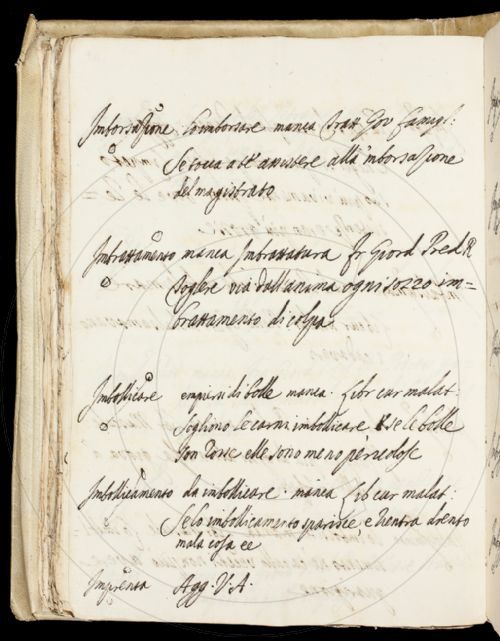 Imborsazione Lo imborsare manca Tratt Gov famigl:
Se tocca a te assistere alla 'mborsazione
del magistrato
Imbrattamento manca Imbrattatura fr Giord Pred R
Togliere via dall'anima ogni sozzo im=
brattamento di colpa
Imbollicare empiersi di bolle manca. Libr cur malat
Sogliono le carni imbollicare e se le bolle
son rosse elle sono meno pericolose
Imbollicamento da imbollicare. manca Lib cur malat:
Se lo imbollicamento sparisce, e rientra drento
mala cosa ee
Imprenta Agg. V. A.